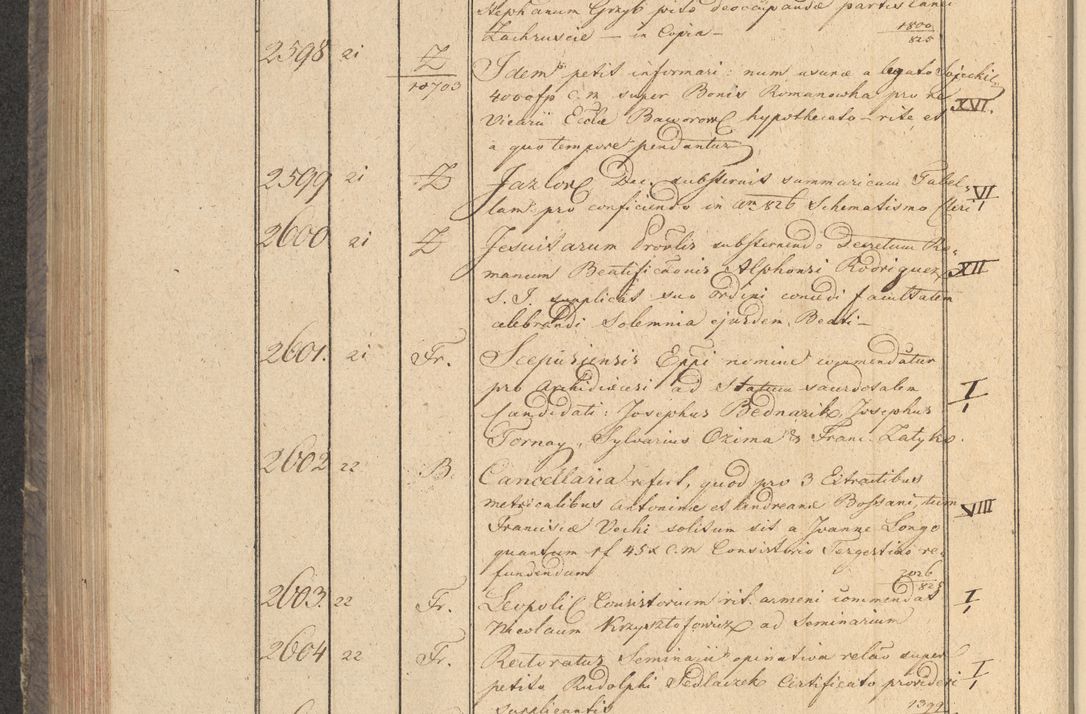 Stephanum Grzyb pcto deoccupandae partis
Zachruscie — in Copia — 1800/825
2598 21 Z 10703 Idem petit informari: num usurae a legato
4000 fp c.m. super Bonis Romanowka pro re XVI.
Vicarii Eccłae Baworow hypothecato rite, et
a quo tempore pendantur
2599 21 Z Jazlow Dec. substernit summaricam Tabel-
lam pro conficiendo in an 826 Schematismo Cleri VI
2600 21 Z Jesuitarum Provlis substernendo Decretum Ro-
manum Beatificaonis Alphonsi Rodriguez XII
S. J. supplicat suo Ordini concedi facultatem
celebrandi Solemnia ejusdem Beati —
2601. 21 Fr. Scepusiensis Eppi nomine commendatur
pro Archidioecesi ad Statum sacerdotalem I
Candidati: Josephus Bednarik, Josephus
Tornay, Sylvarius Ozima & Franc. Zatyko.
2602 22 B. Cancellaria refert, quod pro 3 Extractibus
metricalibus Antoninae et Andreanae Bossani, tum VIII
Francisiae Vochi solitum sit a Joanne Longo
quantum rf 45x c.m Consistorio Tergestino re-
fundendum 2026/825
2603. 22 Fr. Leopoli Consistorium rit. armeni commendat I
Nicolaum Krzysztofowicz ad Seminarium
2604 22 Fr. Rectoratus Seminarii opinativa relao super
petito Rudolphi Sedlaczek Certificato provideri I
supplicantis 1399